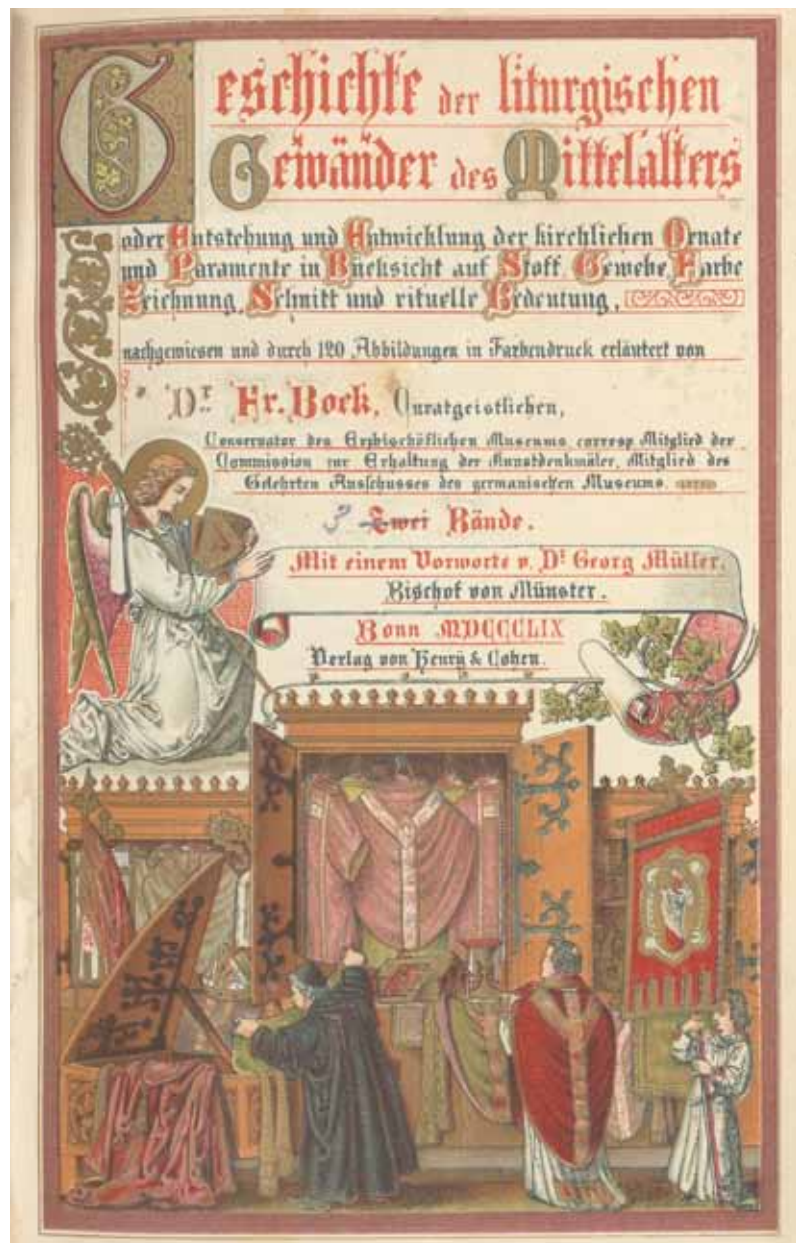 Geschichte der liturgischen
Gewänder des Mittelalters
oder Entstehung und Entwicklung der kirchlichen Ornate
und Paramente in Rücksicht auf Stoff, Gewebe, Farbe
Zeichnung, Schnitt und rituelle Bedeutung,
nachgewiesen und durch 120 Abbildungen in Farbendruck erläutert von
Dr. Fr. Bock, Curatgeistlichen,
Conservator des Erzbischöflichen Museums corresp. Mitglied der
Commission zur Erhaltung der Kunstdenkmäler, Mitglied des
Gelehrten Ausschusses des germanischen Museums.
3 Zwei Bände.
Mit einem Vorworte v. Dr. Georg Müller,
Bischof von Münster.
Bonn MDCCCLIX
Verlag von Henry & Cohen.